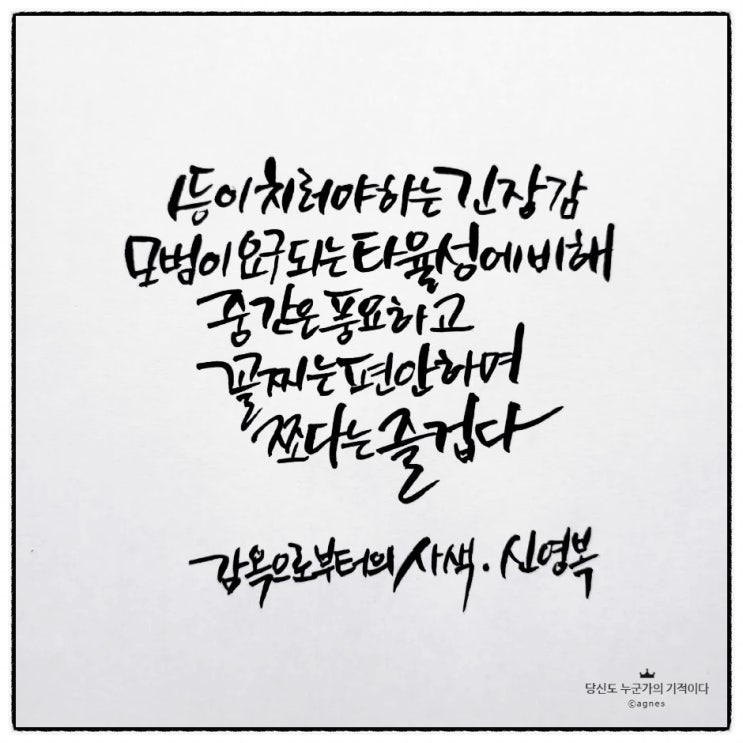 1등이 치러야 하는 긴장감
모범이 요구되는 타율성에 비해
중간은 풍요하고
꼴찌는 편안하며
쪼다는 즐겁다
감옥으로부터의 사색 · 신영복
당신도 누군가의 기적이다
©agnes